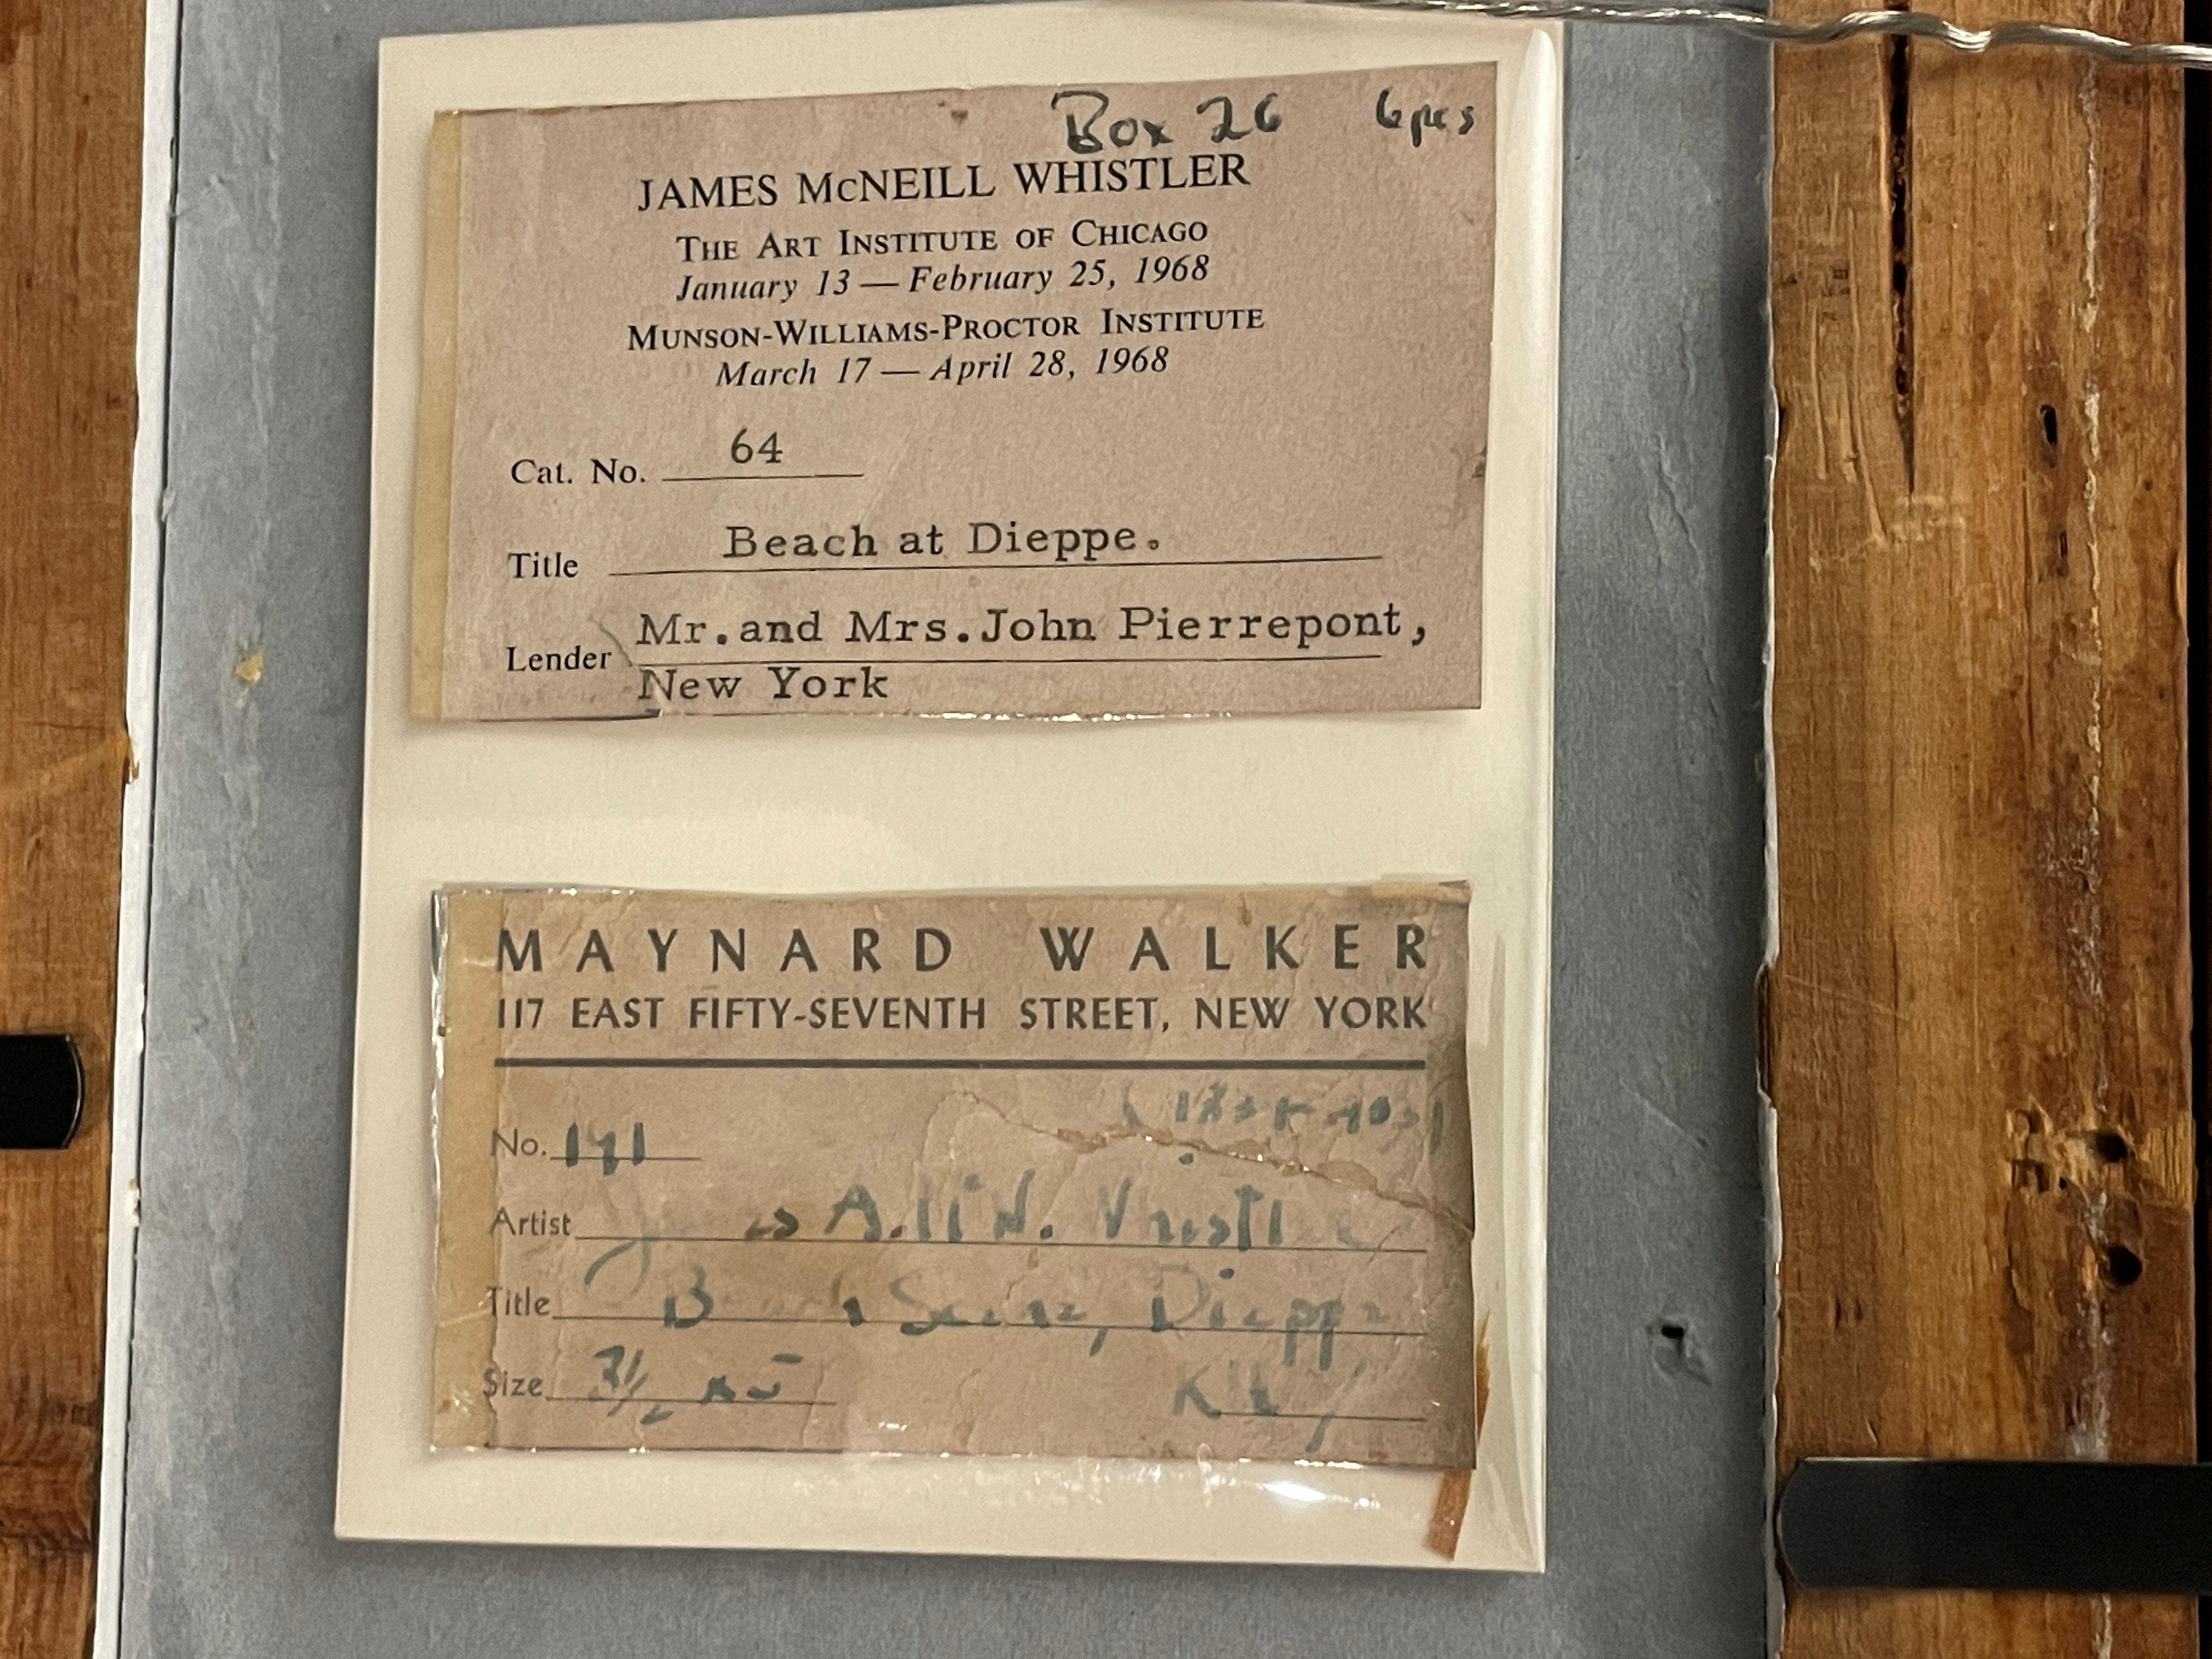 Box 26 6pcs
JAMES McNEILL WHISTLER
THE ART INSTITUTE OF CHICAGO
January 13 — February 25, 1968
MUNSON-WILLIAMS-PROCTOR INSTITUTE
March 17 — April 28, 1968
Cat. No. 64
Title Beach at Dieppe.
Lender Mr. and Mrs. John Pierrepont,
New York
MAYNARD WALKER
117 EAST FIFTY-SEVENTH STREET, NEW YORK
No.
Artist
Title Dieppe
Size